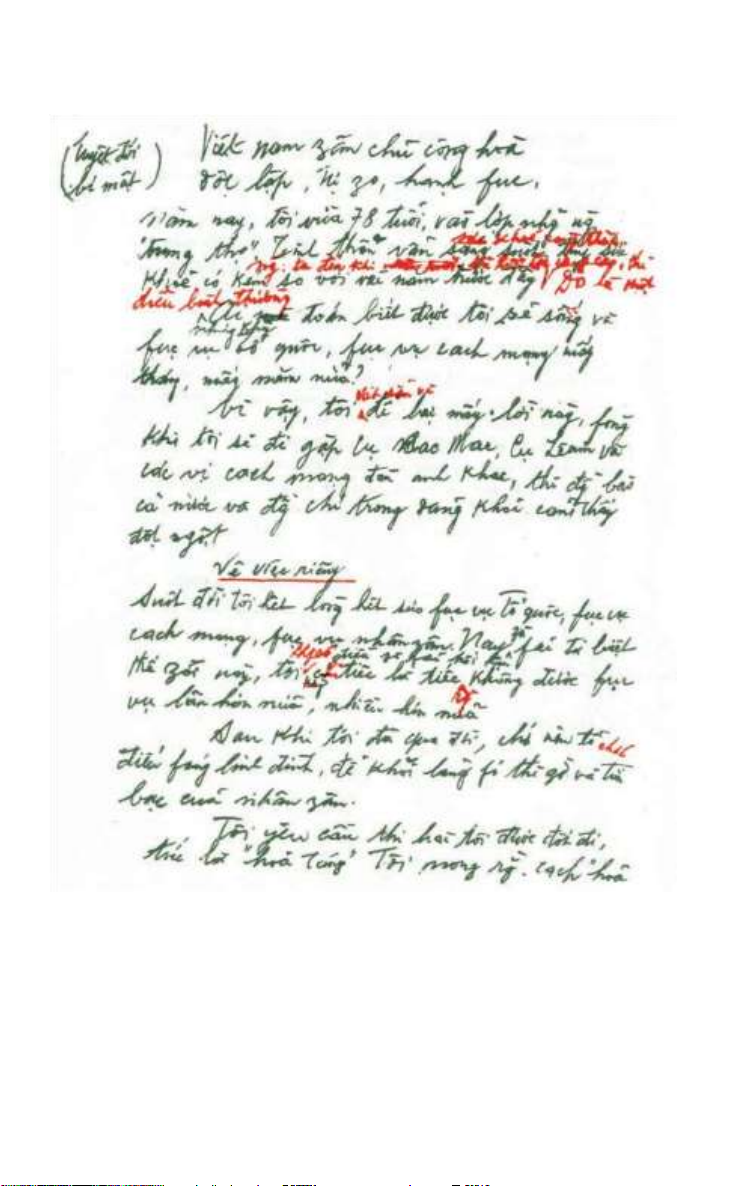 (tuyệt đối
bí mật)
Việt nam zân chủ cộng hoà
độc lập, tự zo, hạnh fúc.
Năm nay, tôi vừa 78 tuổi, vào lớp những ng
"trung thọ". Tinh thần vẫn sáng suốt,
khoẻ có kém so với vài năm trước đây. Đó là một
điều bình thường
Ai mà đoán biết được tôi sẽ sống và
fục vụ tổ quốc, fục vụ cách mạng mấy
tháng, mấy năm nữa?
Vì vậy, tôi để lại mấy lời này, fòng
khi tôi sẽ đi gặp cụ Các Mác, cụ Lênin và
các vị cách mạng đàn anh khác, thì đồng bào
cả nước và đồng chí trong đảng khỏi cảm thấy
đột ngột.
Về việc riêng
Suốt đời tôi hết lòng hết sức fục vụ tổ quốc, fục vụ
cách mạng, fục vụ nhân zân. Nay zù fải từ biệt
thế zới này, tôi không có điều gì fải hối hận, chỉ tiếc là tiếc rằng không được fục
vụ lâu hơn nữa, nhiều hơn nữa
Sau khi tôi đã qua đời, chớ nên tổ chức
điếu fúng linh đình, để khỏi lãng fí thì giờ và tiền
bạc của nhân zân.
Tôi yêu cầu thi hài tôi được đốt đi,
tức là "hoả táng". Tôi mong rằng cách "hoả